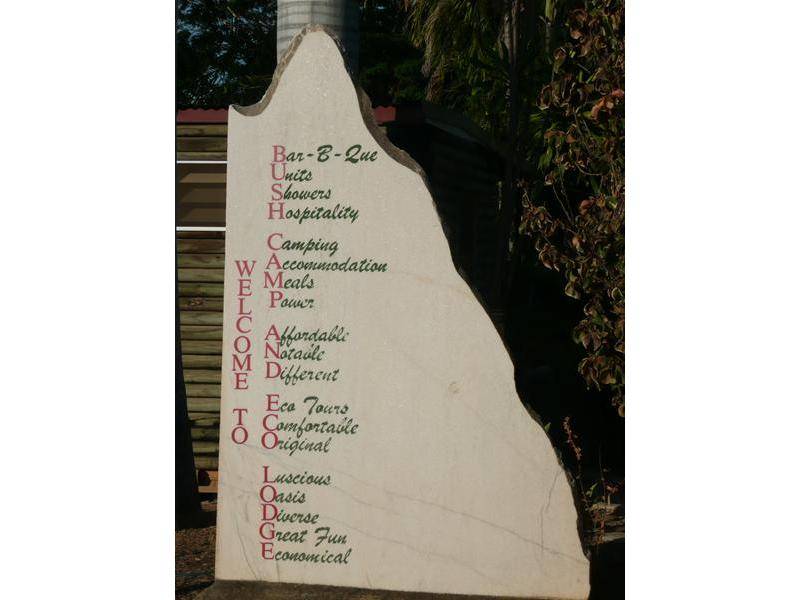 WELCOME TO
Bar-B-Que
Units
Showers
Hospitality
Camping
Accommodation
Meals
Power
Affordable
Notable
Different
Eco Tours
Comfortable
Original
Luscious
Oasis
Diverse
Great Fun
Economical